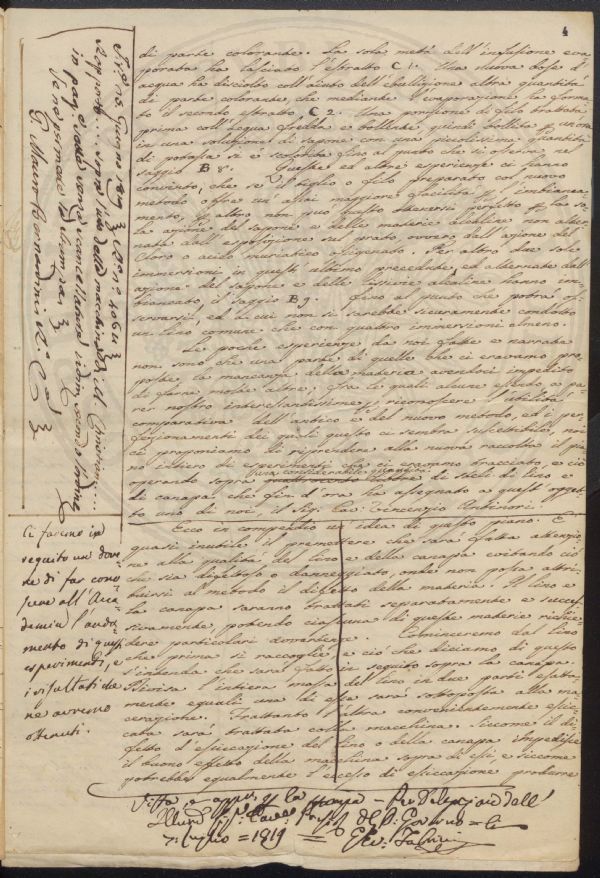 4
di parte colorante. La sola metà dell'infusione eva
porata ha lasciato l'estratto C 1. Una nuova dose d'
acqua ha disciolto coll'aiuto dell'ebullizione altra quantità
di parte colorante, che mediante l'evaporazione ha forma
to il secondo estratto C 2. Una porzione di filo trattata
prima coll'acqua fredda e bollente quindi bollita ancora
in una soluzione di sapone con una piccolissima quantità
di potassa si è scolorita fino al punto che si osserva nel
saggio B 8. Queste ed altre esperienze ci hanno
convinto, che se il tiglio o filo preparato col nuovo
metodo offre un'assai maggiore facilità all'imbianca
mento, altro non può questo ottenersi perfetto
la azione del sapone e delle materie alcaline non alter
nata dall'esposizione sul prato ovvero dall'azione del
Cloro o acido muriatico ossigenato. Per altro due sole
immersioni in quest' ultimo precedute, ed alternate dall'
azione del sapone e delle lissivie alcaline hanno im
biancato il saggio B 9. fino al punto che potrà os
servarsi, ed a cui non si sarebbe sicuramente condotto
un lino comune che con quattro immersioni almeno.
Le poche esperienze da noi fatte e narrate
non sono che una parte di quelle che ci eravamo pro
poste, la mancanza della materia avendoci impedito
di farne molte altre; fra le quali alcune essendo a pa
rer nostro interessantissime per riconoscere l'utilità
comparativa dell'antico e del nuovo metodo, ed i per
fezionamenti dei quali questo ci sembra suscettibile, noi
ci proponiamo di riprendere alla nuova raccolta il pia
no intiero di esperimenti che ci eravamo tracciato, e ciò
una considerabile quantità
operando sopra di steli di lino e
di canapa che fin d'ora ha assegnato a quest'ogget
to uno di noi il Sig. Cav. Vincenzio Antinori.
Ecco in compendio un'idea di questo piano. È
quasi inutile il premettere che sarà fatta attenzio
ne alla qualità del lino e della canapa evitando ciò
che sia difettoso o danneggiato, onde non possa attri
buirsi al metodo il difetto della materia. Il lino e
la canapa saranno trattati separatamente e succes
sivamente, potendo ciascuna di queste materie richie
dere particolari avvertenze. Cominceremo dal lino
che prima si raccoglie e ciò che diciamo di questo
s'intenda che sarà fatto in seguito sopra la canapa.
Divisa l'intiera massa del lino in due parti esatta
mente eguali una di esse sarà sottoposta alla ma
cerazione. Frattanto l'altra convenientemente essic
cata sarà trattata colla macchina. Siccome il di
fetto d'essiccazione del lino o della canapa impedisce
il buon effetto della macchina sopra di essi, e siccome
potrebbe egualmente l'eccesso di essiccazione produrre
Ci faremo in
seguito un dove
re di far cono
scere all'Acca
demia l'anda
mento di questi
esperimenti, e
i risultati che
ne avremo
ottenuti.
Visto e appr. per la stampa
7. Luglio = 1819 =